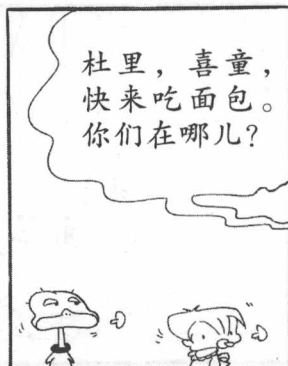 杜里，喜童，
快来吃面包。
你们在哪儿？